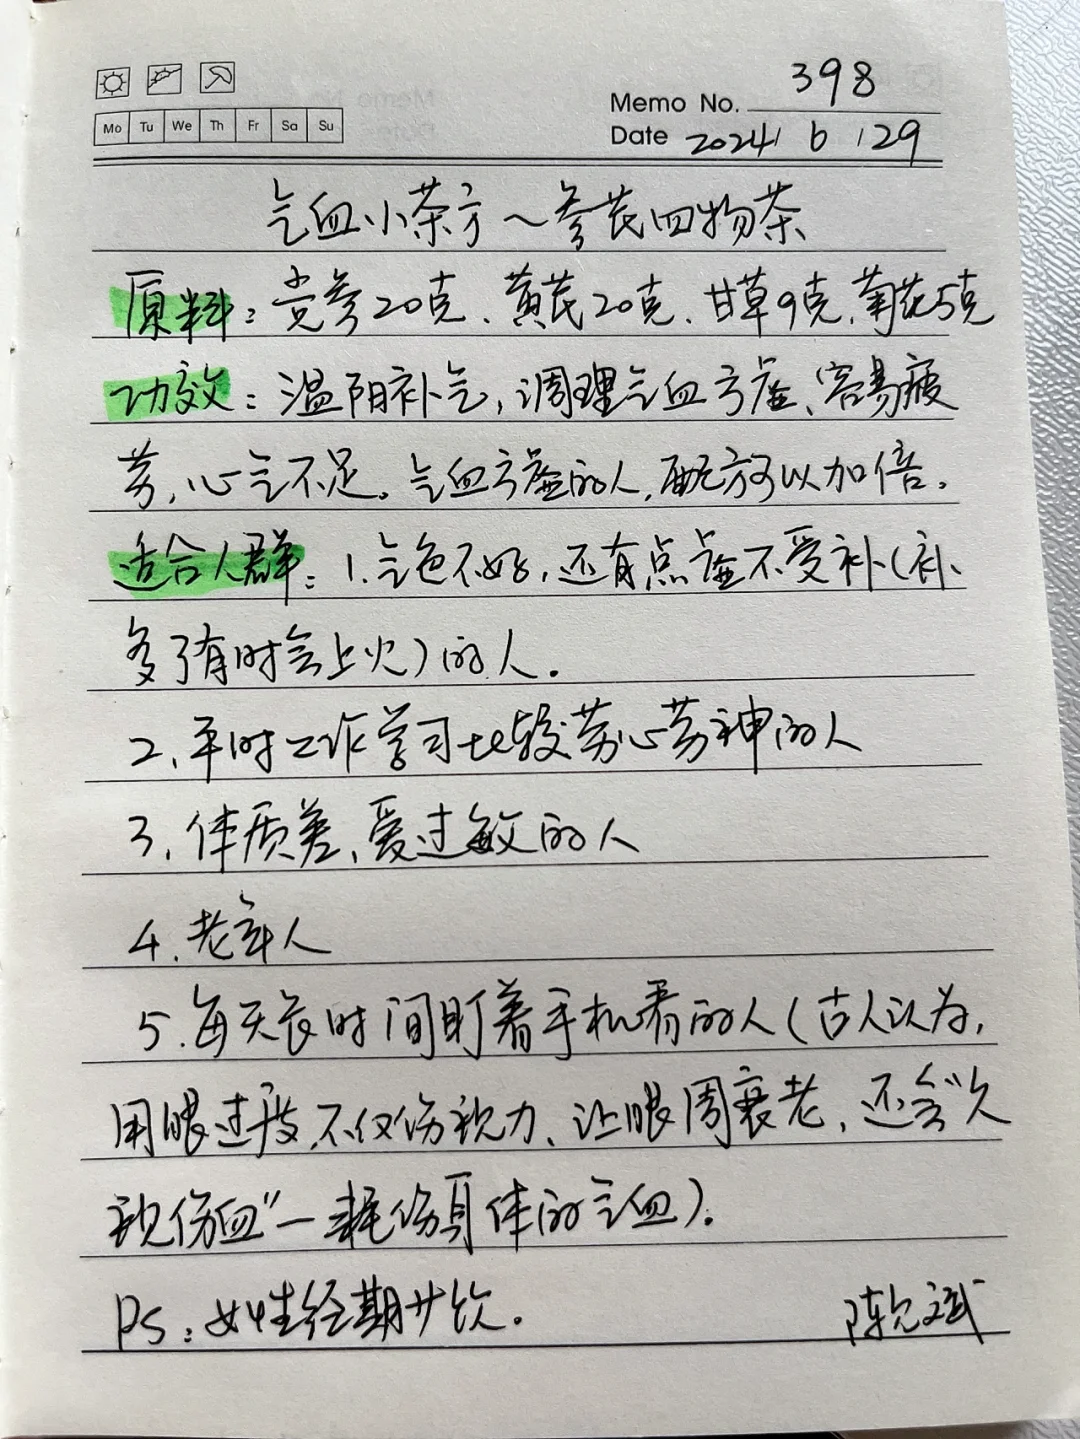 Memo No. 398
Mo Tu We Th Fr Sa Su
Date 2024 / 6 / 29
气血小茶方~参芪四物茶
原料：党参20克、黄芪20克、甘草9克、菊花5克
功效：温阳补气，调理气血亏虚、容易疲
劳，心气不足。气血亏虚的人，配方可以加倍。
适合人群：1.气色不好，还有点虚不受补（补
多了有时会上火）的人。
2、平时工作学习比较劳心劳神的人
3、体质差、爱过敏的人
4.老年人
5.每天长时间盯着手机看的人（古人认为，
用眼过度，不仅伤视力、让眼周衰老，还会“久
视伤血”—耗伤身体的气血）。
Ps：女性经期少饮。
陈允斌